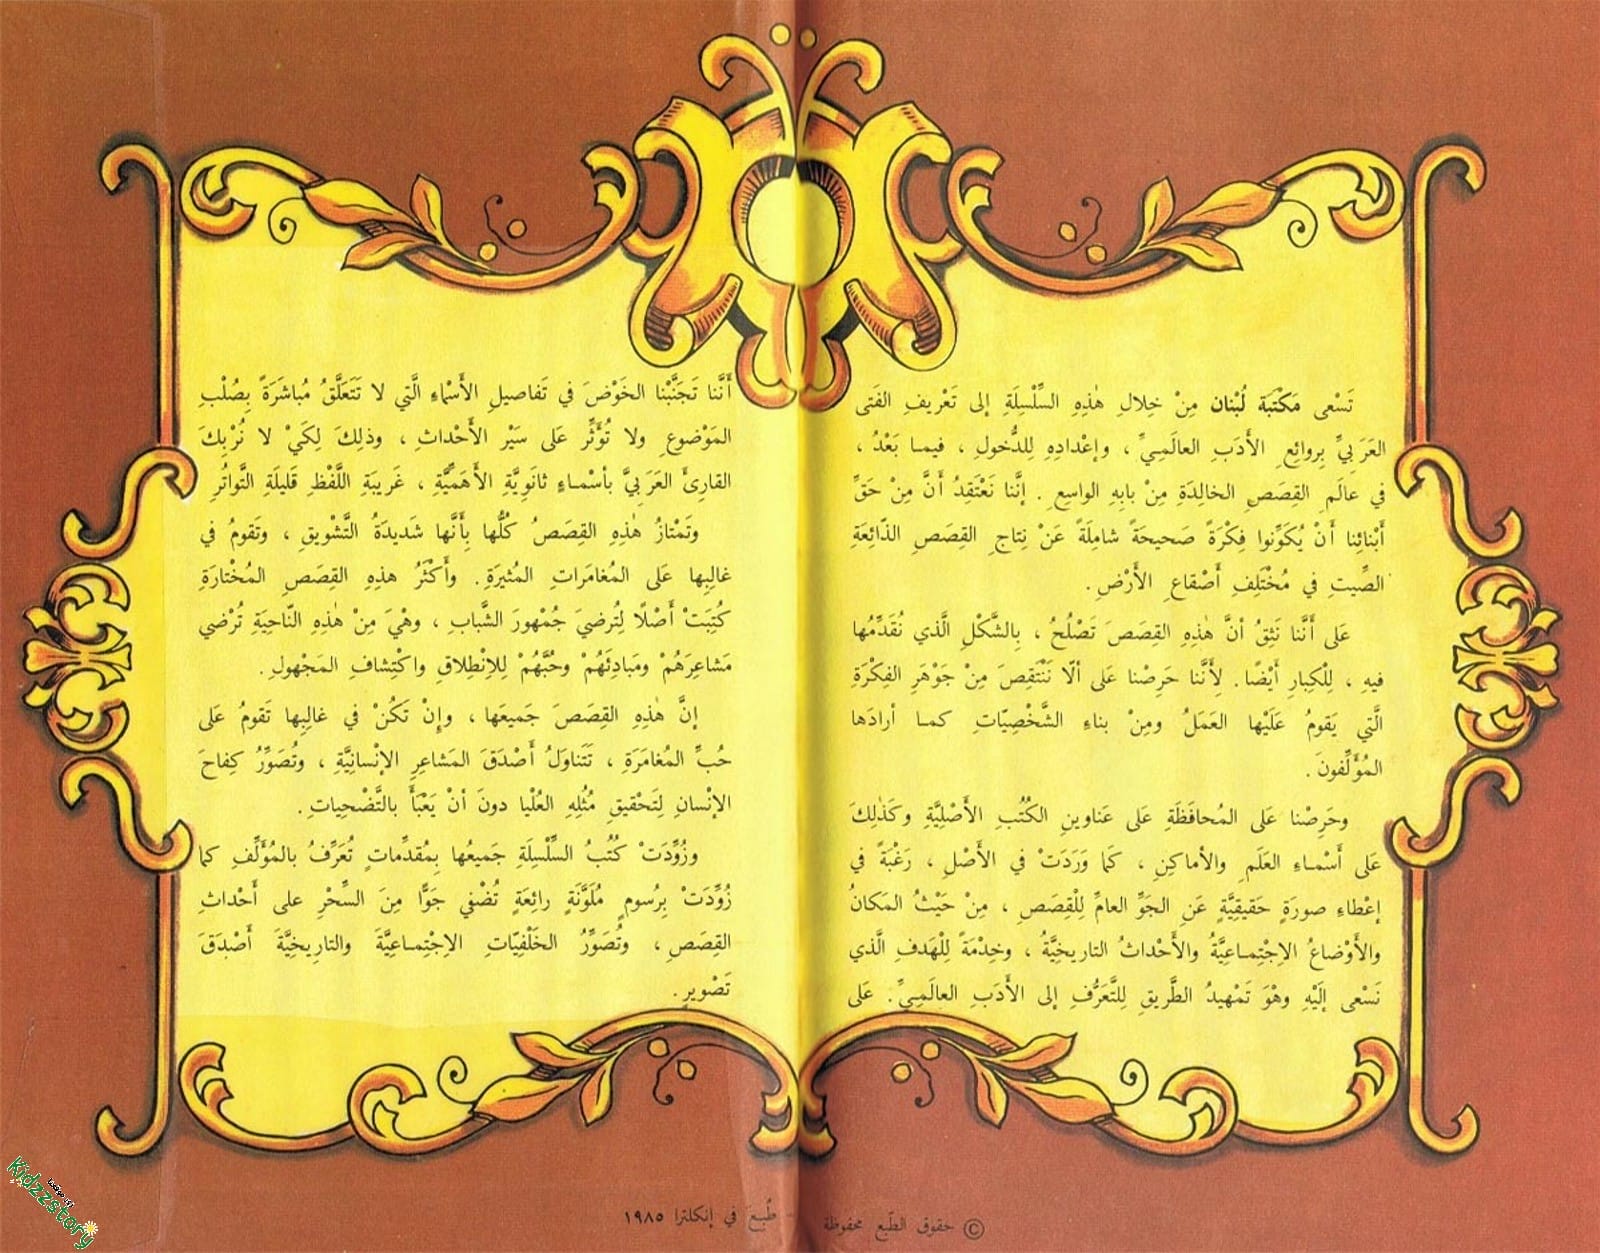 تَسْعى مَكتَبَة لُبْنان مِنْ خِلالِ هٰذِهِ السِّلْسِلَةِ إلى تَعْريفِ الفَتى
العَرَبِيِّ بِروائِعِ الأَدَبِ العالَمِيِّ ، وإعْدادِهِ لِلدُّخولِ ، فيما بَعْدُ ،
في عالَمِ القِصَصِ الخالِدَةِ مِنْ بابِهِ الواسِعِ . إنَّنا نَعْتَقِدُ أَنَّ مِنْ حَقِّ
أَبْنائِنا أَنْ يُكَوِّنوا فِكْرَةً صَحيحَةً شامِلَةً عَنْ نِتاجِ القِصَصِ الذّائِعَةِ
الصِّيتِ في مُخْتَلِفِ أَصْقاعِ الأَرْضِ .
عَلى أَنَّنا نَثِقُ أَنَّ هٰذِهِ القِصَصَ تَصْلُحُ ، بِالشَّكْلِ الَّذي نُقَدِّمُها
فيهِ ، لِلْكِبارِ أَيْضًا . لِأَنَّنا حَرِصْنا عَلى أَلّا نَنْتَقِصَ مِنْ جَوْهَرِ الفِكْرَةِ
الَّتي يَقومُ عَلَيْها العَمَلُ ومِنْ بناءِ الشَّخْصِيّاتِ كما أرادَها
المُؤَلِّفونَ .
وحَرِصْنا عَلى المُحافَظَةِ عَلى عَناوينِ الكُتُبِ الأَصْلِيَّةِ وكَذٰلِكَ
عَلى أَسْماءِ العَلَمِ والأماكِنِ ، كَما وَرَدَتْ في الأَصْلِ ، رَغْبَةً في
إعْطاءِ صورَةٍ حَقيقِيَّةٍ عَنِ الجَوِّ العامِّ لِلْقِصَصِ ، مِنْ حَيْثُ المَكانُ
والأَوْضاعُ الاِجْتِماعِيَّةُ والأَحْداثُ التاريخِيَّةُ ، وخِدْمَةً لِلْهَدَفِ الَّذي
نَسْعى إلَيْهِ وهْوَ تَمْهيدُ الطَّريقِ لِلتَّعَرُّفِ إلى الأَدَبِ العالَمِيِّ . عَلى
أَنَّنا تَجَنَّبْنا الخَوْضَ في تَفاصيلِ الأَسْماءِ الَّتي لا تَتَعَلَّقُ مُباشَرَةً بِصُلْبِ
المَوْضوعِ ولا تُؤَثِّرُ عَلى سَيْرِ الأَحْداثِ ، وذلِكَ لِكَيْ لا نُرْبِكَ
القارِئَ العَرَبِيَّ بأسْماءٍ ثانَوِيَّةِ الأَهَمِّيَّةِ ، غَريبَةِ اللَّفْظِ قَليلَةِ التَّواتُرِ .
وتَمْتازُ هٰذِهِ القِصَصُ كُلُّها بِأَنَّها شَديدَةُ التَّشْويقِ ، وتَقومُ في
غالِبِها عَلى المُغامَراتِ المُثيرَةِ . وأَكْثَرُ هذِهِ القِصَصِ المُخْتارَةِ
كُتِبَتْ أَصْلًا لِتُرضيَ جُمْهورَ الشَّبابِ ، وهْيَ مِنْ هٰذِهِ النّاحِيَةِ تُرْضي
مَشاعِرَهُمْ ومَبادِئَهُمْ وحُبَّهُمْ لِلاِنْطِلاقِ واكْتِشافِ المَجْهولِ .
إنَّ هٰذِهِ القِصَصَ جَميعَها ، وإِنْ تَكُنْ في غالِبِها تَقومُ عَلى
حُبِّ المُغامَرَةِ ، تَتَناوَلُ أَصْدَقَ المَشاعِرِ الإنْسانِيَّةِ ، وتُصَوِّرُ كِفاحَ
الإنْسانِ لِتَحْقيقِ مُثُلِهِ العُلْيا دونَ أنْ يَعْبَأَ بالتَّضْحِياتِ .
وزُوِّدَتْ كُتُبُ السِّلْسِلَةِ جَميعُها بِمُقدِّماتٍ تُعَرِّفُ بالمُؤَلِّفِ كما
زُوِّدَتْ بِرُسومٍ مُلَوَّنَةٍ رائِعَةٍ تُضْفي جَوًّا مِنَ السِّحْرِ على أَحْداثِ
القِصَصِ ، وتُصَوِّرُ الخَلْفِيّاتِ الاِجْتِماعِيَّةَ والتاريخِيَّةَ أَصْدَقَ
تَصْويرٍ .
© حقوق الطّبع محفوظة - طُبِعَ في إنكلترا ١٩٨٥
Kidzzstory